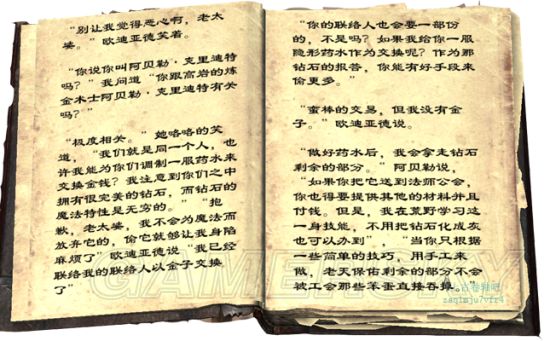 “别让我觉得恶心啊，老太
婆。”欧迪亚德笑着。
“你说你叫阿贝勒·克里迪特
吗？”我问道“你跟高岩的炼
金术士阿贝勒·克里迪特有关
吗？”
“极度相关。”她咯咯的笑
道，“我们就是同一个人，也
许我能为你们调制一服药水来
交换金钱？我注意到你们之中
拥有很完美的钻石，而钻石的
魔法特性是无穷的。”“抱
歉，老太婆，我不会为魔法而
放弃它的，偷它就够让我身陷
麻烦了”欧迪亚德说“我已经
联络我的联络人以金子交换
了”
“你的联络人也会要一部份
的，不是吗？如果我给你一服
隐形药水作为交换呢？作为那
钻石的报答，你能有好手段来
偷更多。”
“蛮棒的交易，但我没有金
子。”欧迪亚德说。
“做好药水后，我会拿走钻石
剩余的部分。”阿贝勒说，
“如果你把它送到法师公会，
你也得要提供其他的材料并且
付钱。但是，我在荒野学习这
一身技能，不用把钻石化成灰
也可以办到”，“当你只根据
一些简单的技巧，用手工来
做，老天保佑剩余的部分不会
被工会那些笨蛋直接吞掉。”
GAMERSKY
上古卷轴吧
zaqimju7vfr4